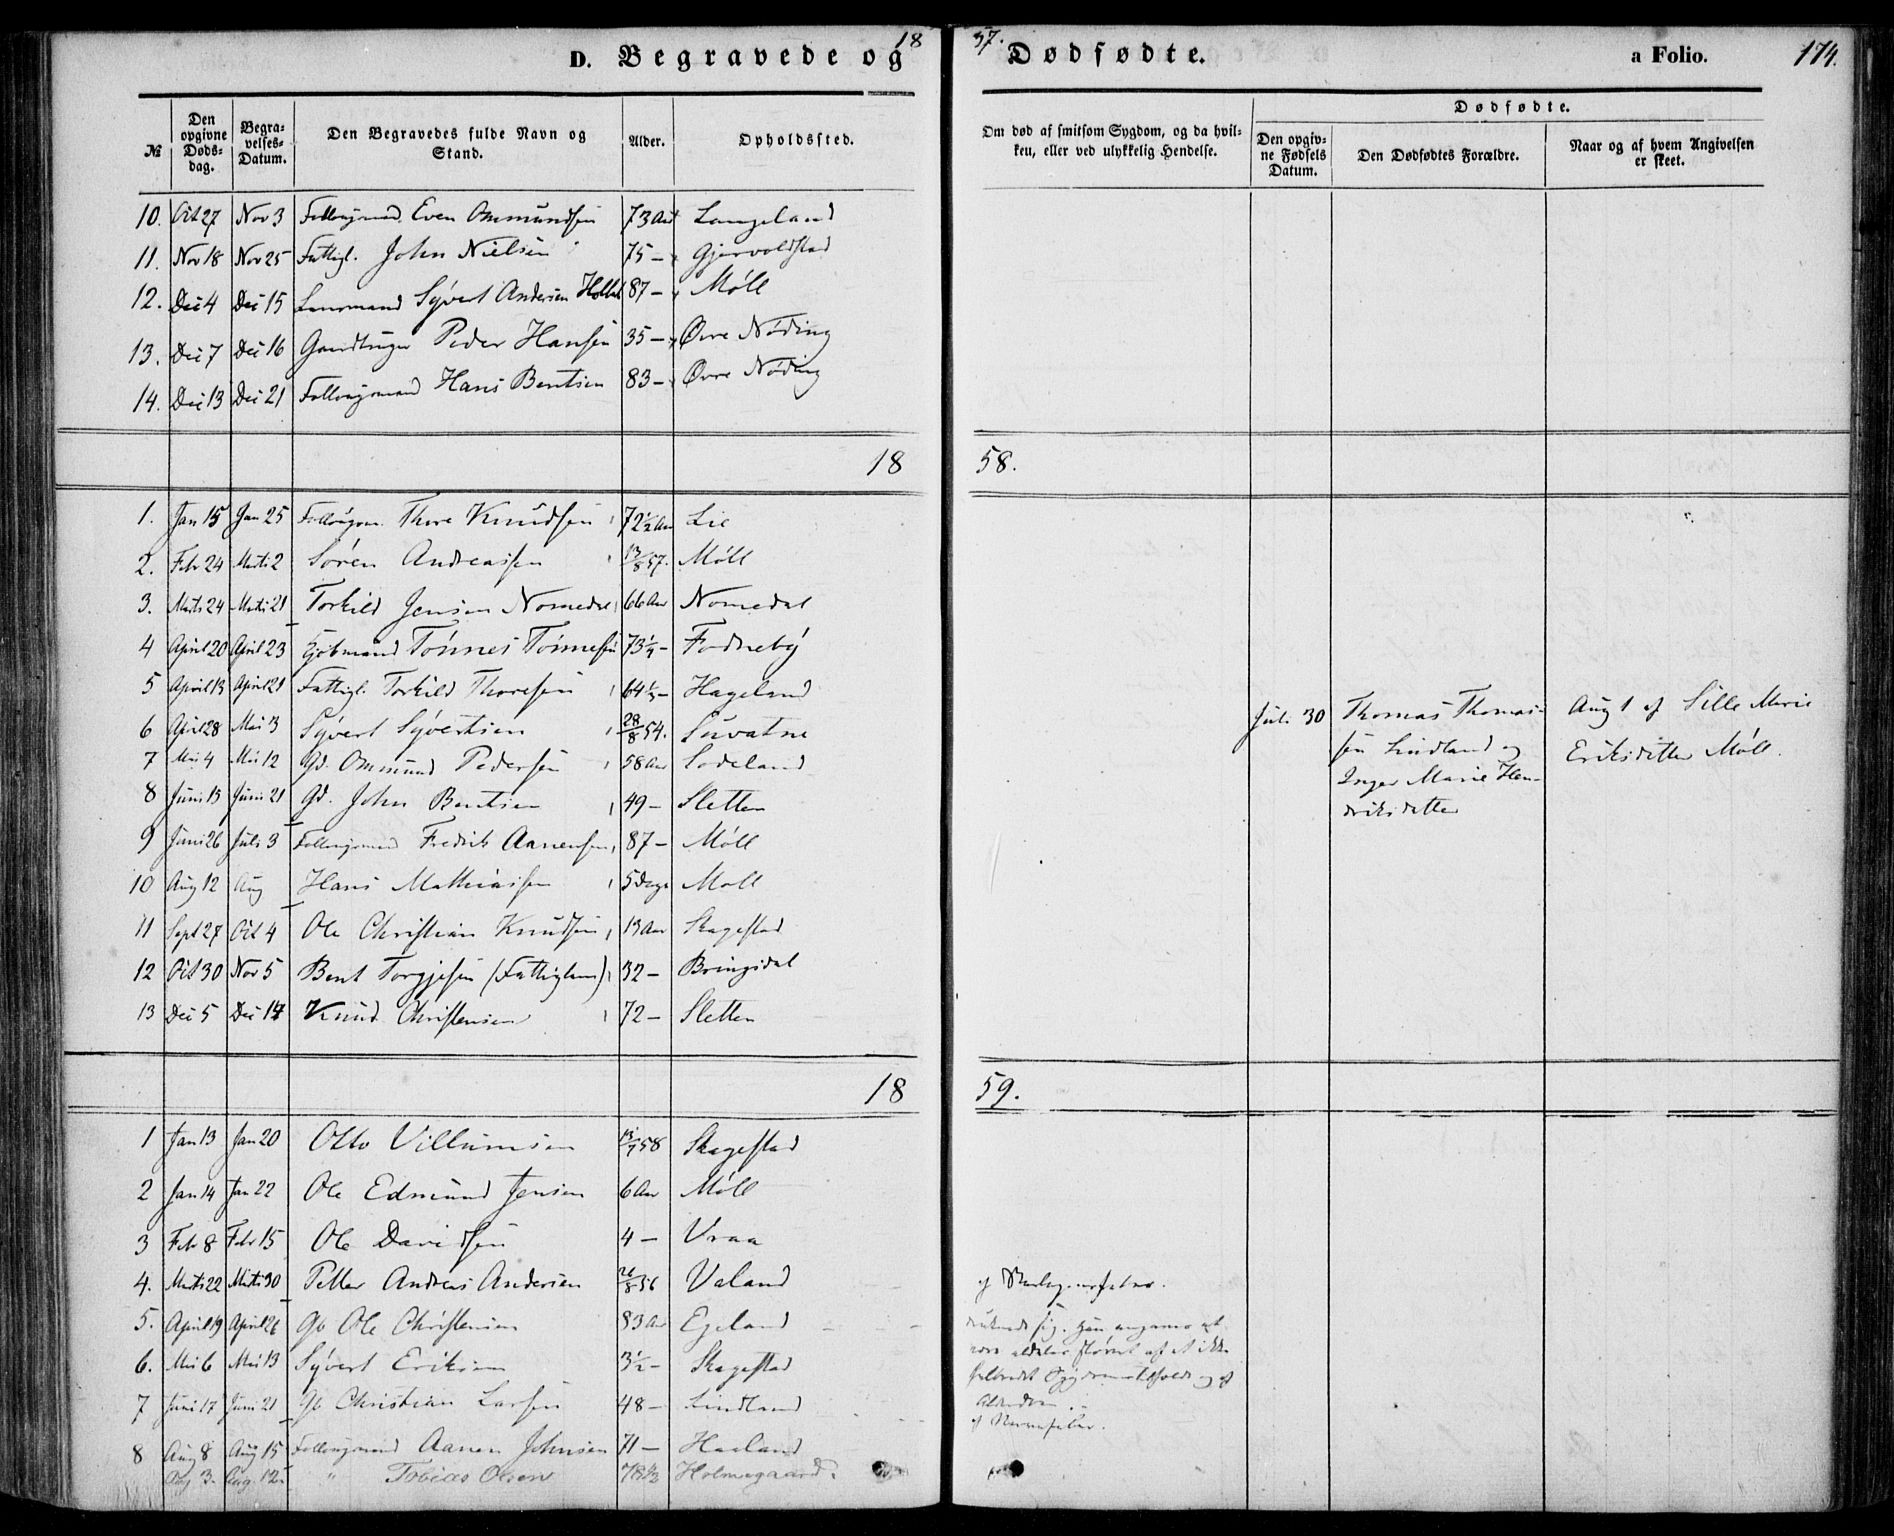 D. Begravede og 18
57. Dødfødte. a Folio. 174.
№ Den opgivne Døds-dag. Begra-velses-Datum. Den Begravedes fulde Navn og Stand. Alder. Opholdssted.
Om død af smitsom Sygdom, og da hvil-ken, eller ved ulykkelig Hendelse. Dødfødte. Den opgiv-ne Fødsels Datum. Den Dødfødtes Forældre. Naar og af hvem Angivelsen er skeet.
10. Oct 27 Nov 3 Even Ommundsen 73 Aar Langeland
11. Nov 18 Nov 25 Fattigl. John Nielsen 75 – Gjervoldstad
12. Dec 4 Dec 15 Sývert Andersen 87 – Møll
13. Dec 7 Dec 16 Peder Hansen 35 – Øvre Nøding
14. Dec 13 Dec 21 Hans Bentsen 83 – Øvre Nøding
18 58.
1. Jan 15 Jan 25 Thore Knudsen 72½ Aar Lie
2. Febr 24 Marts 2 Sören Andreassen 13/8 57. Møll
3. Marts 24 Marts 21 Torkild Jensen Nomedal 66 Aar Nomedal
4 April 20 April 23 Tönnes Tönnesen 73¼ – Fodnebý
5 April 13 April 21 Fattigl. Torkild Thoresen 64 – Hageland
6 April 28 Mai 3 Sývert Sývertsen 28/8 54. Suvatne
7 Mai 4 Mai 12 Gd. Ommund Pedersen 58 Aar Lodeland
8 Juni 13 Juni 21 Gd. John Bentsen 49 – Sletten
9 Juni 26 Juli 3 Fredrik Aanensen 87 – Møll
10 Aug 12 Aug Hans Mathiassen 5 Dage Møll
11 Sept 27 Oct 4 Ole Christian Knudsen 13 Aar Skagestad
12 Oct 30 Nov 5 Bent Torgjesen (Fattiglem) 32 – Bringsdal
13 Dec 5 Dec 14 Knud Christensen 72 – Sletten
Juli 30 Thomas Thomas-
sen Lindland og
Inger Marie Hen-
driksdatter
Aug 1 af Sille Marie
Eriksdatter Møll.
18 59.
1 Jan 13 Jan 20 Otto Villumsen 58 Skagestad
2 Jan 14 Jan 22 Ole Edmund Jensen 6 Aar Møll
3 Febr 8 Febr 15 Ole Davidsen 4 – Vraa
4. Marts 22 Marts 30 Petter Andreas Andersen 26/8 56 Valand
5. April 19 April 26 Gb Ole Christensen 83 Aar Egeland
6. Mai 6 Mai 13 Sývert Eriksen 3½ – Skagestad
7 Juni 17 Juni 21 Gb Christian Larsen 48 – Lindland
8 Aug 8 Aug 15 Aanen Johnsen 71 – Haaland
Aug 3. Aug. 12. " Tobias Olsen 78½ Holmegaard.